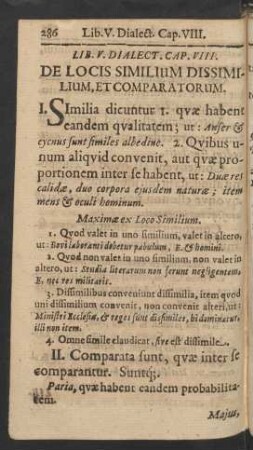 286 Lib. V. Dialect. Cap. VIII.
LIB. V. DIALECT. CAP. VIII.
DE LOCIS SIMILIUM DISSIMI-
LIUM, ET COMPARATORUM.
I. SImilia dicuntur 1. qvæ habent
eandem qvalitatem; ut: Anser &
cycnus sunt similes albedine. 2. Qvibus u-
num aliqvid convenit, aut qvæ pro-
portionem inter se habent, ut: Duæ res
calidæ, duo corpora ejusdem naturæ; item
mens & oculi hominum.
Maximæ ex Loco Similium.
1. Qvod valet in uno similium, valet in altero,
ut: Bovi laboranti debetur pabulum, E. & homini.
2. Qvod non valet in uno similium, non valet in
altero, ut: Studia literarum non ferunt negligentem,
E. nec res militaris.
3. Dissimilibus conveniunt dissimilia, item qvod
uni dissimilium convenit, non convenit alteri, ut:
Ministri Ecclesiæ, & reges sunt dissimiles, hi dominantur,
illi non item.
4. Omne simile claudicat, sive est dissimile.
II. Comparata sunt, qvæ inter se
comparantur. Suntq;
Paria, qvæ habent eandem probabilita-
tem.
Majus,